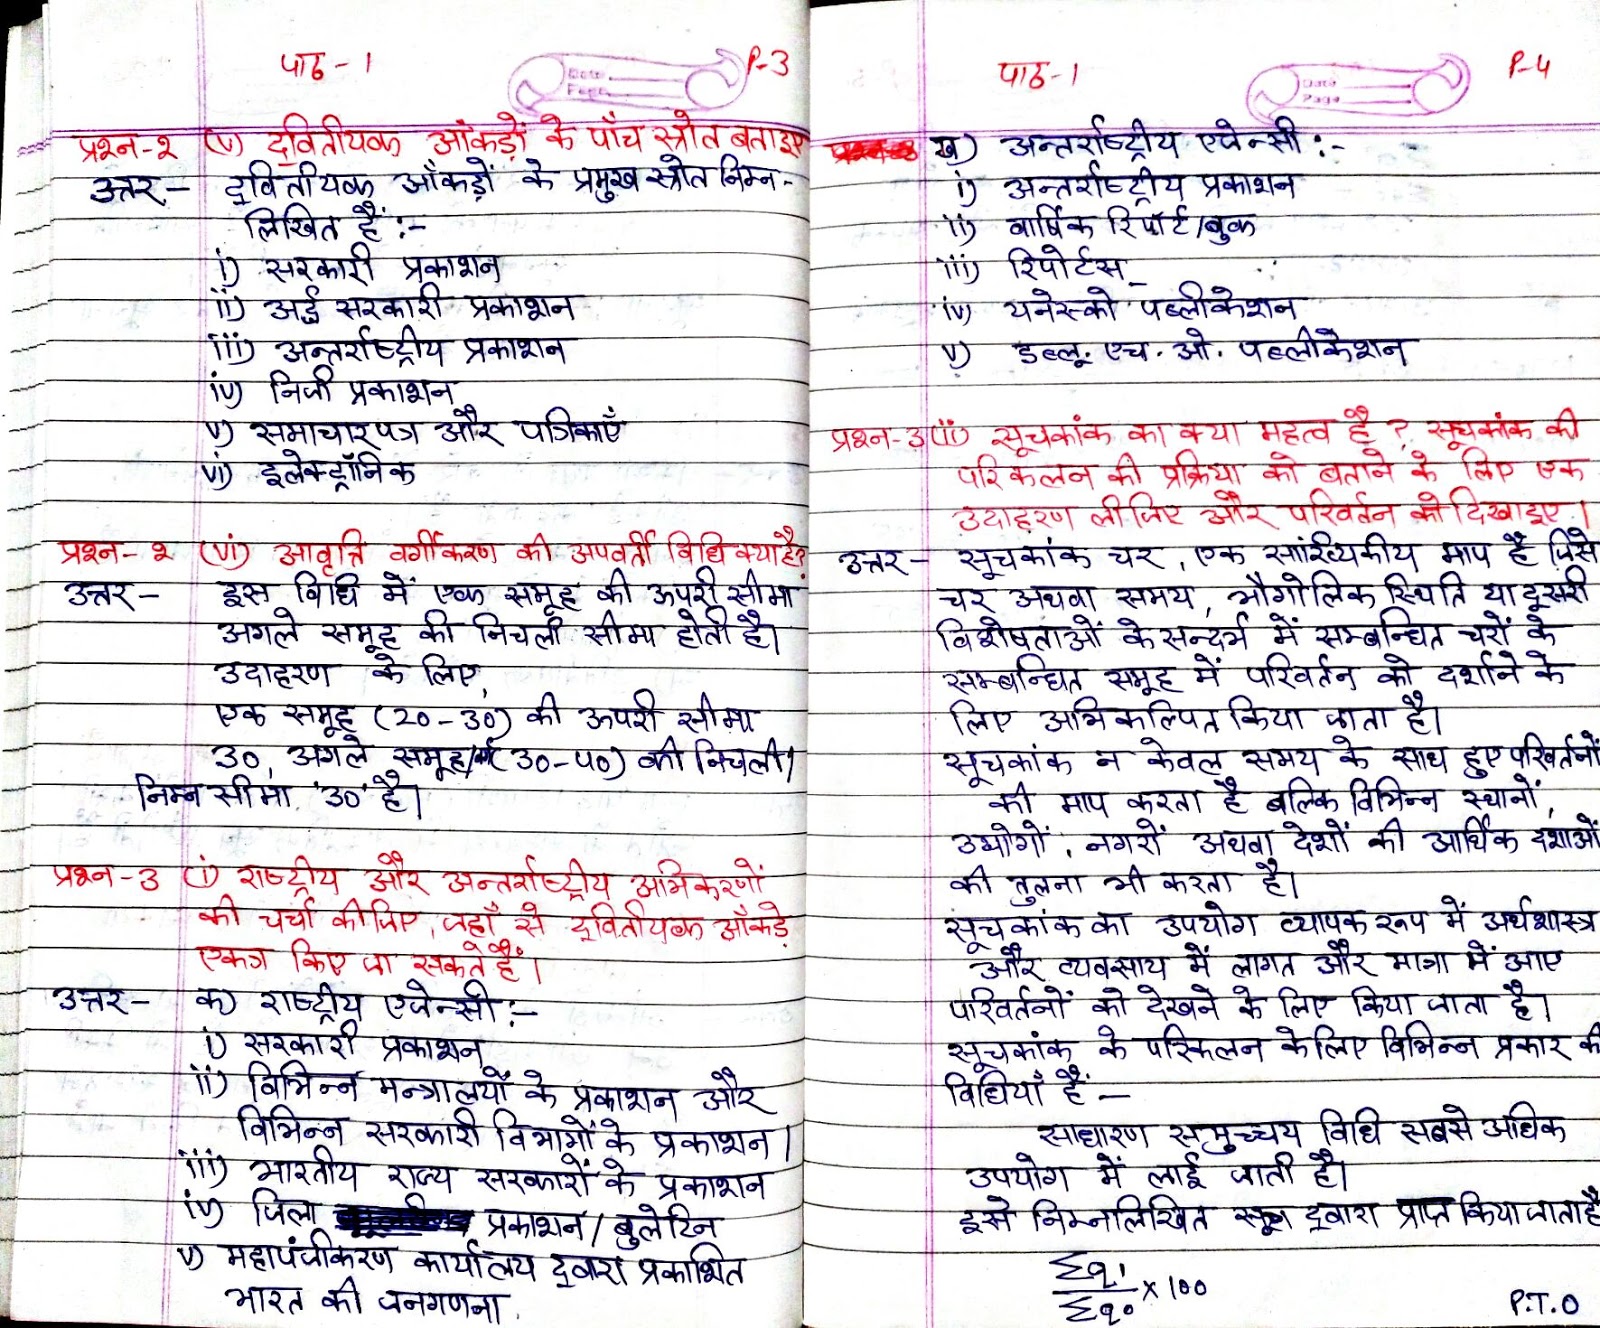 पाठ - 1
P-3
Date
Page
प्रश्न-2 (v) द्वितीयक आँकड़ों के पाँच स्त्रोत बताइए
उत्तर - द्वितीयक आँकड़ों के प्रमुख स्त्रोत निम्न-
लिखित हैं :-
i) सरकारी प्रकाशन
ii) अर्द्ध सरकारी प्रकाशन
iii) अन्तर्राष्ट्रीय प्रकाशन
iv) निजी प्रकाशन
v) समाचार पत्र और पत्रिकाएँ
vi) इलेक्ट्रॉनिक
प्रश्न-2 (vi) आवृत्ति वर्गीकरण की अपवर्ती विधि क्या है?
उत्तर - इस विधि में एक समूह की ऊपरी सीमा
अगले समूह की निचली सीमा होती है।
उदाहरण के लिए,
एक समूह (20-30) की ऊपरी सीमा
30, अगले समूह/वर्ग (30-40) की निचली/
निम्न सीमा '30' है।
प्रश्न-3 (i) राष्ट्रीय और अन्तर्राष्ट्रीय अभिकरणों
की चर्चा कीजिए, जहाँ से द्वितीयक आँकड़े
एकत्र किए जा सकते हैं।
उत्तर - क) राष्ट्रीय एजेन्सी :-
i) सरकारी प्रकाशन
ii) विभिन्न मन्त्रालयों के प्रकाशन और
विभिन्न सरकारी विभागों के प्रकाशन।
iii) भारतीय राज्य सरकारों के प्रकाशन
iv) जिला प्रकाशन / बुलेटिन
v) महापंजीकरण कार्यालय द्वारा प्रकाशित
भारत की जनगणना
पाठ - 1
P-4
Date
Page
ख) अन्तर्राष्ट्रीय एजेन्सी :-
i) अन्तर्राष्ट्रीय प्रकाशन
ii) वार्षिक रिपोर्ट/बुक
iii) रिपोर्टस
iv) यनेस्को पब्लीकेशन
v) डब्लू. एच. ओ. पब्लीकेशन
प्रश्न-3(ii) सूचकांक का क्या महत्व है? सूचकांक की
परिकलन की प्रक्रिया को बताने के लिए एक
उदाहरण लीजिए और परिवर्तन को दिखाइए।
उत्तर - सूचकांक चर, एक सांख्यिकीय माप है जिसे
चर अथवा समय, भौगोलिक स्थिति या दूसरी
विशेषताओं के सन्दर्भ में सम्बन्धित चरों के
सम्बन्धित समूह में परिवर्तन को दर्शाने के
लिए अभिकल्पित किया जाता है।
सूचकांक न केवल समय के साथ हुए परिवर्तनों
की माप करता है बल्कि विभिन्न स्थानों,
उद्योगों, नगरों अथवा देशों की आर्थिक दशाओं
की तुलना भी करता है।
सूचकांक का उपयोग व्यापक रूप में अर्थशास्त्र
और व्यवसाय में लागत और मात्रा में आए
परिवर्तनों को देखने के लिए किया जाता है।
सूचकांक के परिकलन के लिए विभिन्न प्रकार की
विधियाँ हैं —
साधारण समुच्चय विधि सबसे अधिक
उपयोग में लाई जाती है।
इसे निम्नलिखित सूत्र द्वारा प्राप्त किया जाता है
Σq₁
Σq₀ × 100
P.T.O